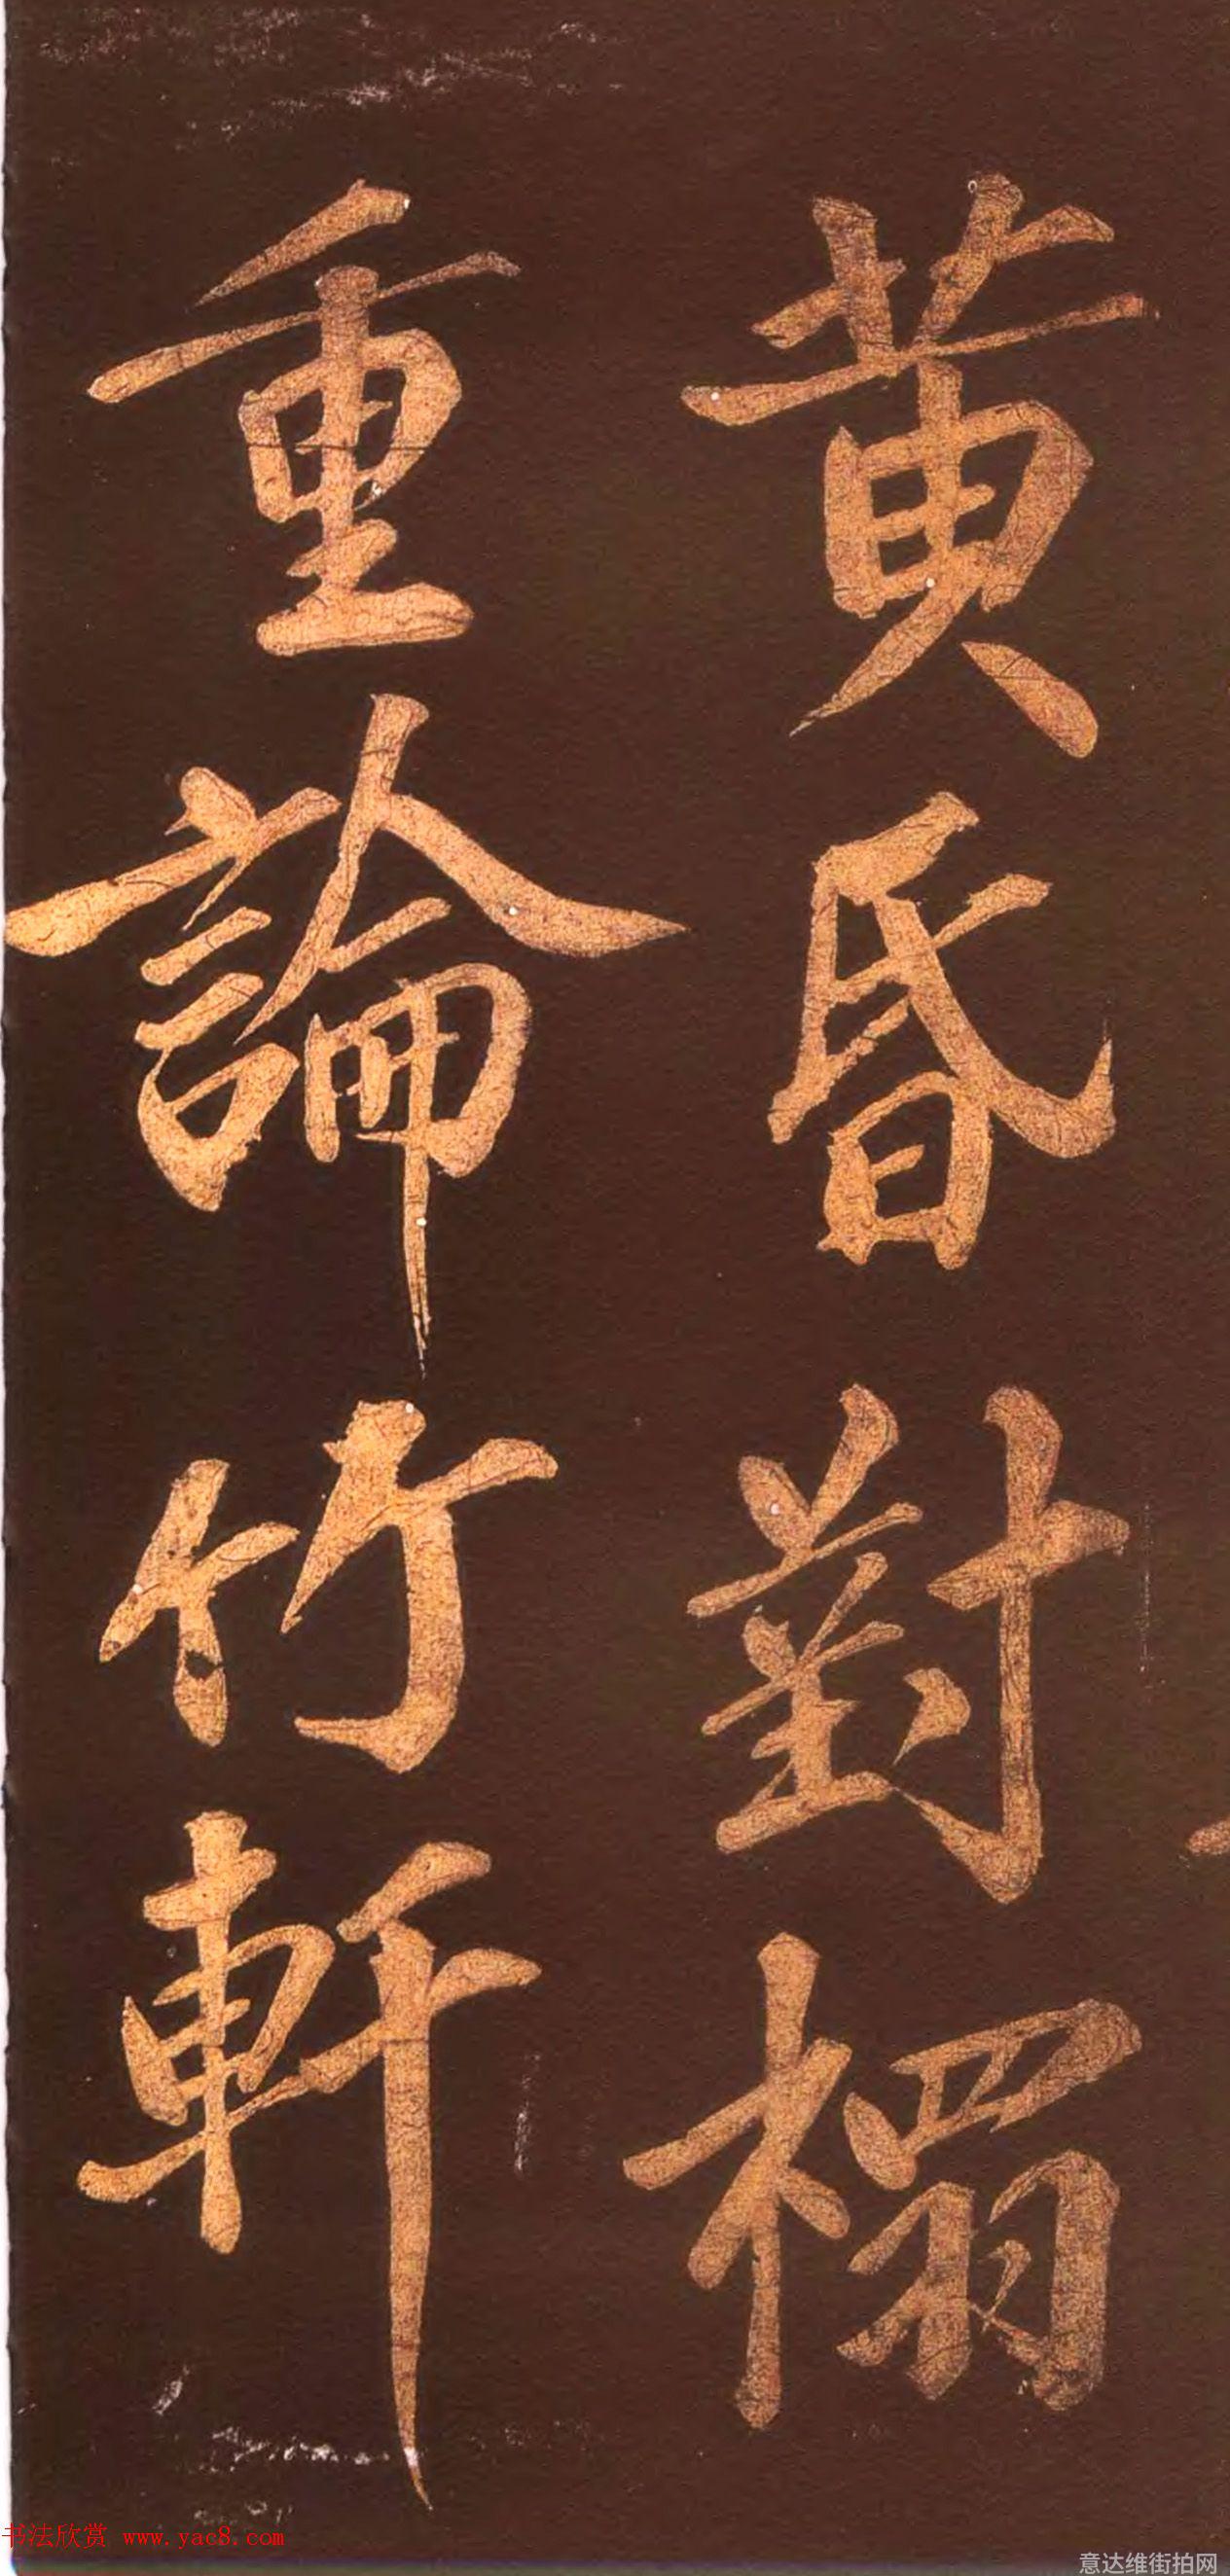 黄昏對榻
重論竹軒
书法欣赏 www.yac8.com
意达维街拍网